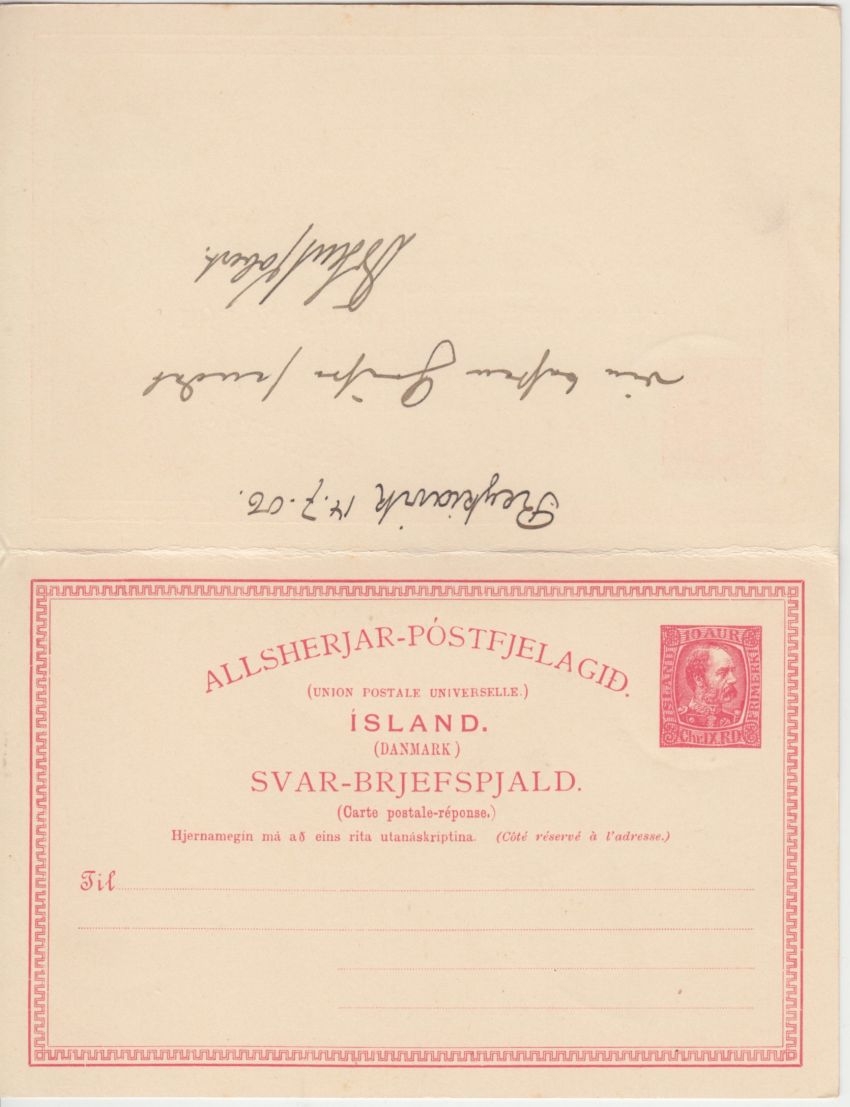 Reykiavik 14.7.06.
die besten Grüße sendet
ALLSHERJAR-PÓSTFJELAGIÐ.
(UNION POSTALE UNIVERSELLE.)
ÍSLAND.
(DANMARK)
SVAR-BRJEFSPJALD.
(Carte postale-réponse.)
Hjernamegin má að eins rita utanáskriptina. (Côté réservé à l'adresse.)
Til
10 AUR
ÍSLAND
FRIMERKI
Chr.IX.RD.